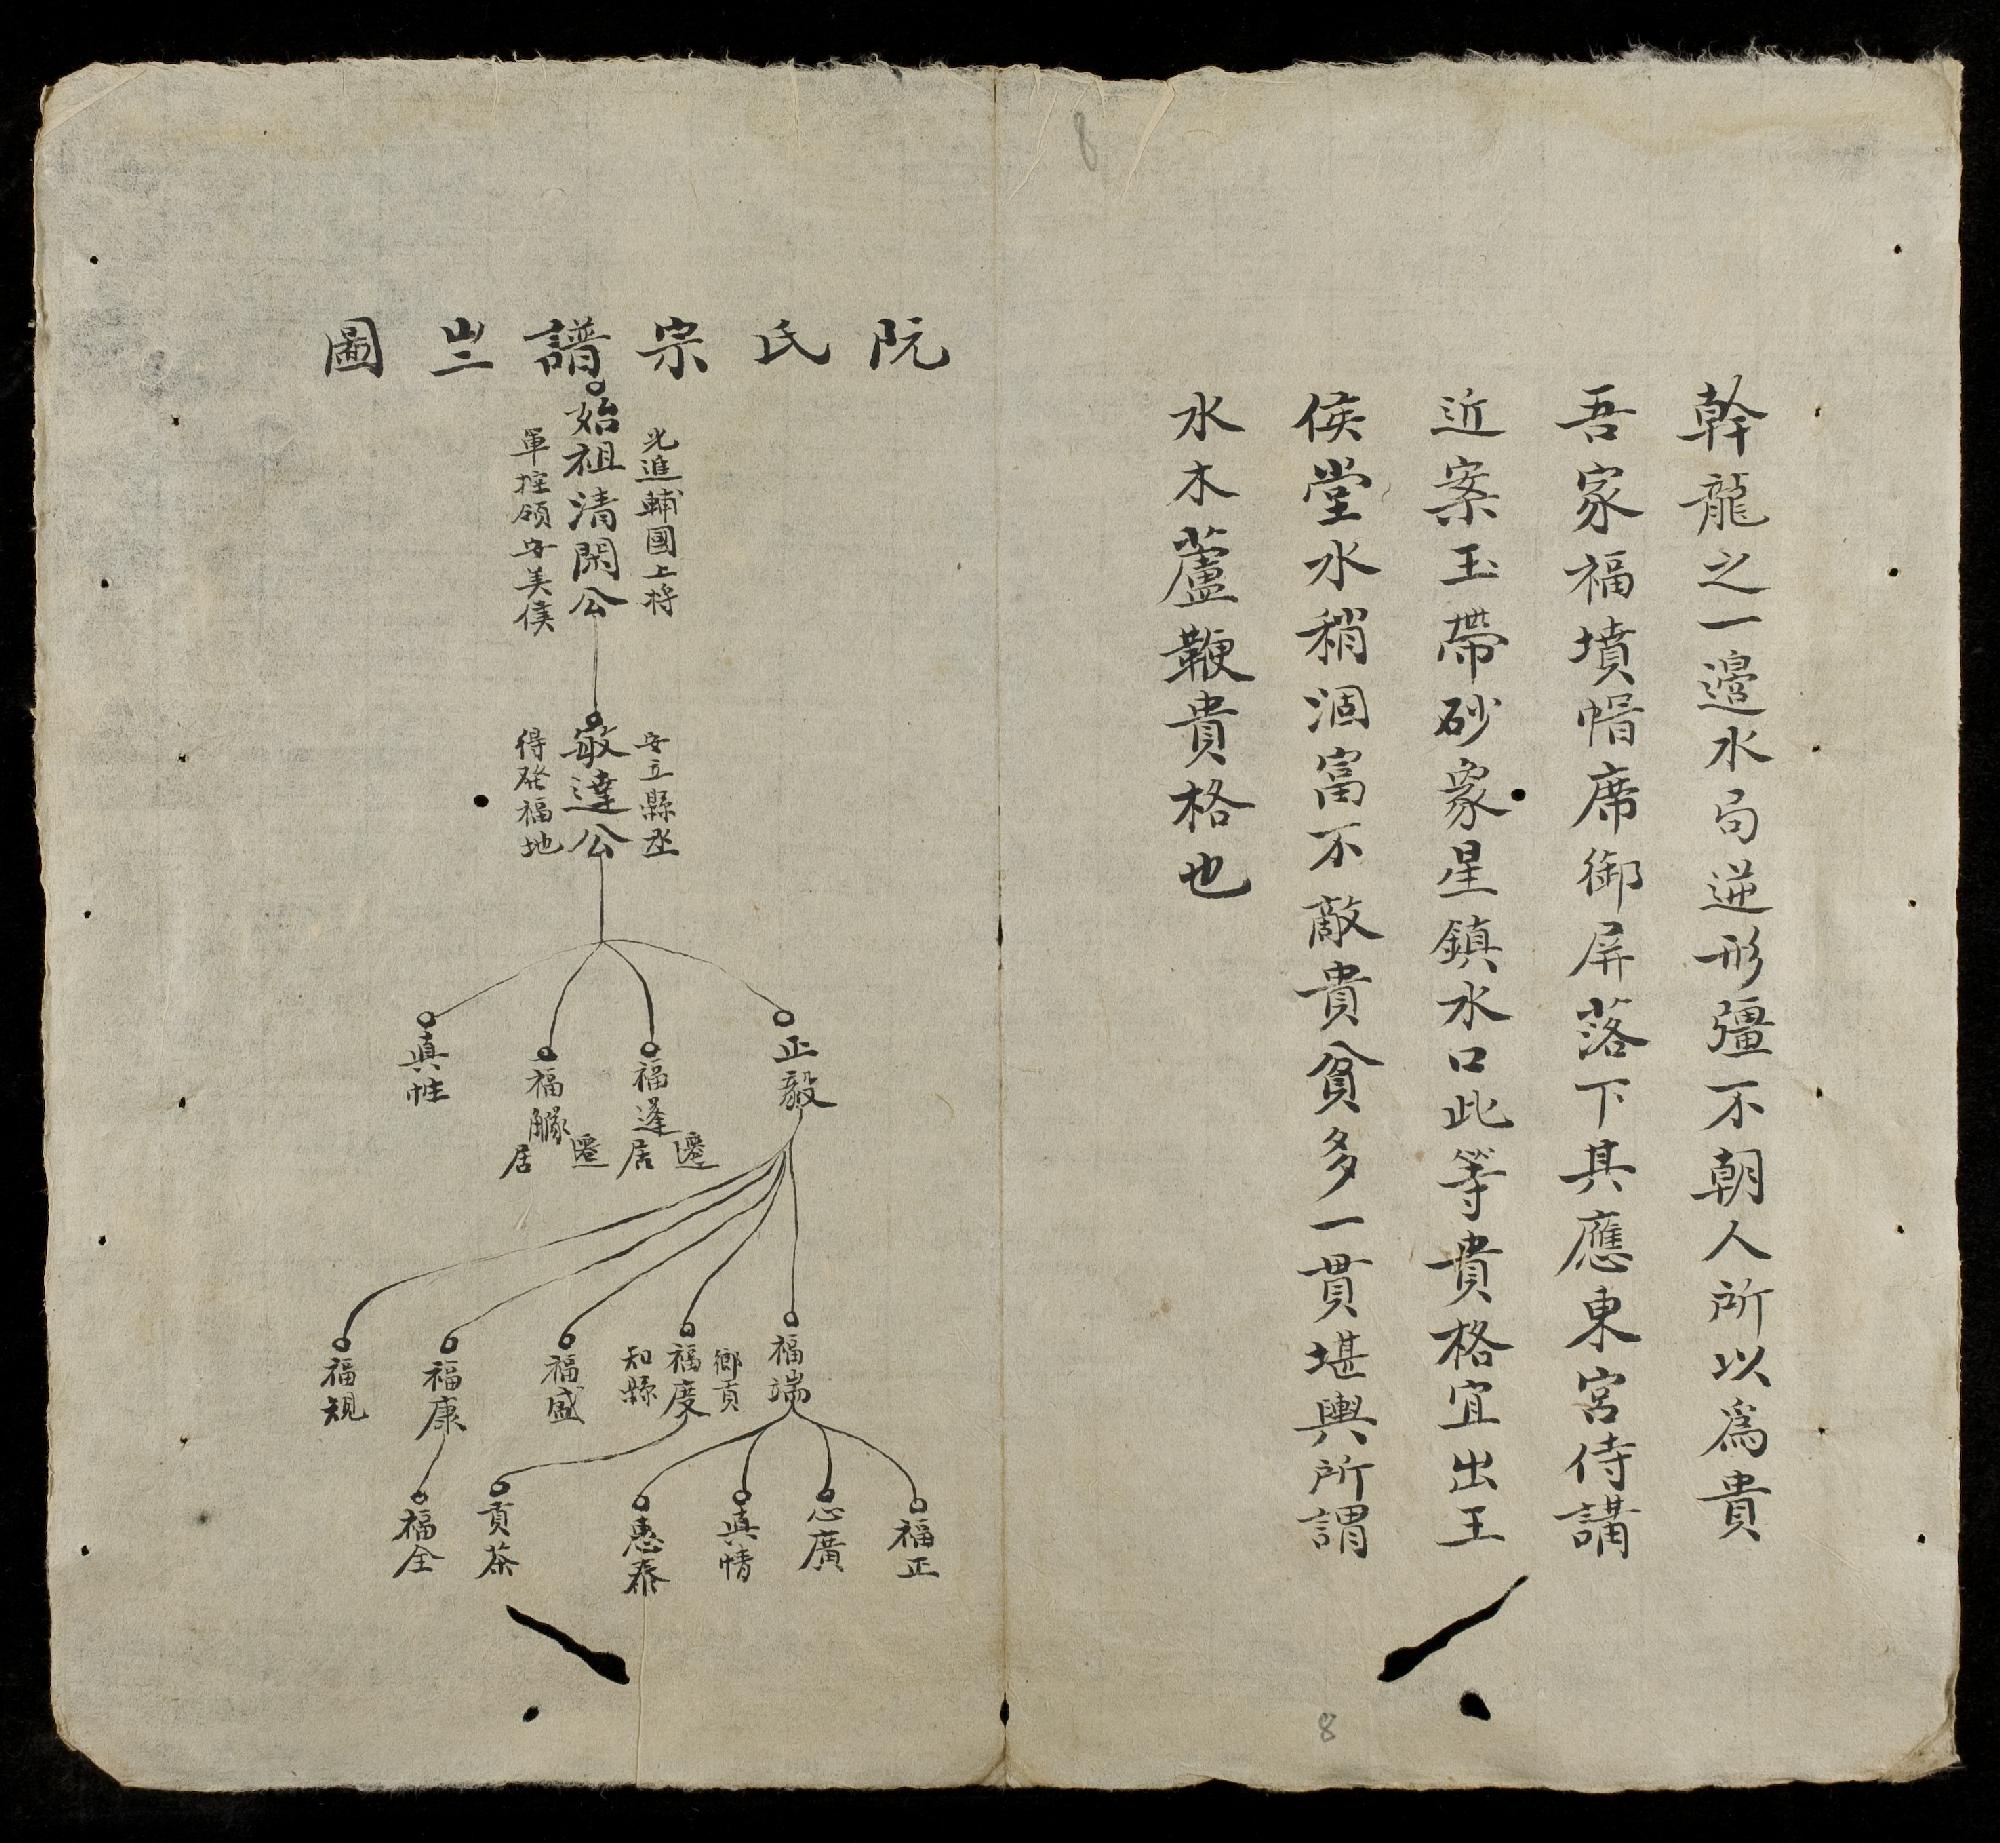 8
幹龍之一邉水局逆形彊不朝人所以爲貴
吾家福墳帽席御屏落下其應東宮侍講
近案玉帶砂象星鎮水口此等貴格宜出王
侯堂水稍涸富不敵貴貧多一貫堪輿所謂
水木蘆鞭貴格也
8
阮氏宗譜亗圖
光進輔國上將
始祖清閑公
軍控領安美侯
安立縣丞
敏達公
得發福地
正毅
福蓬
遷居
福
遷居
真性
福端
鄉貢
福度
知縣
福盛
福康
福規
福正
心廣
真情
惠泰
貢茶
福全